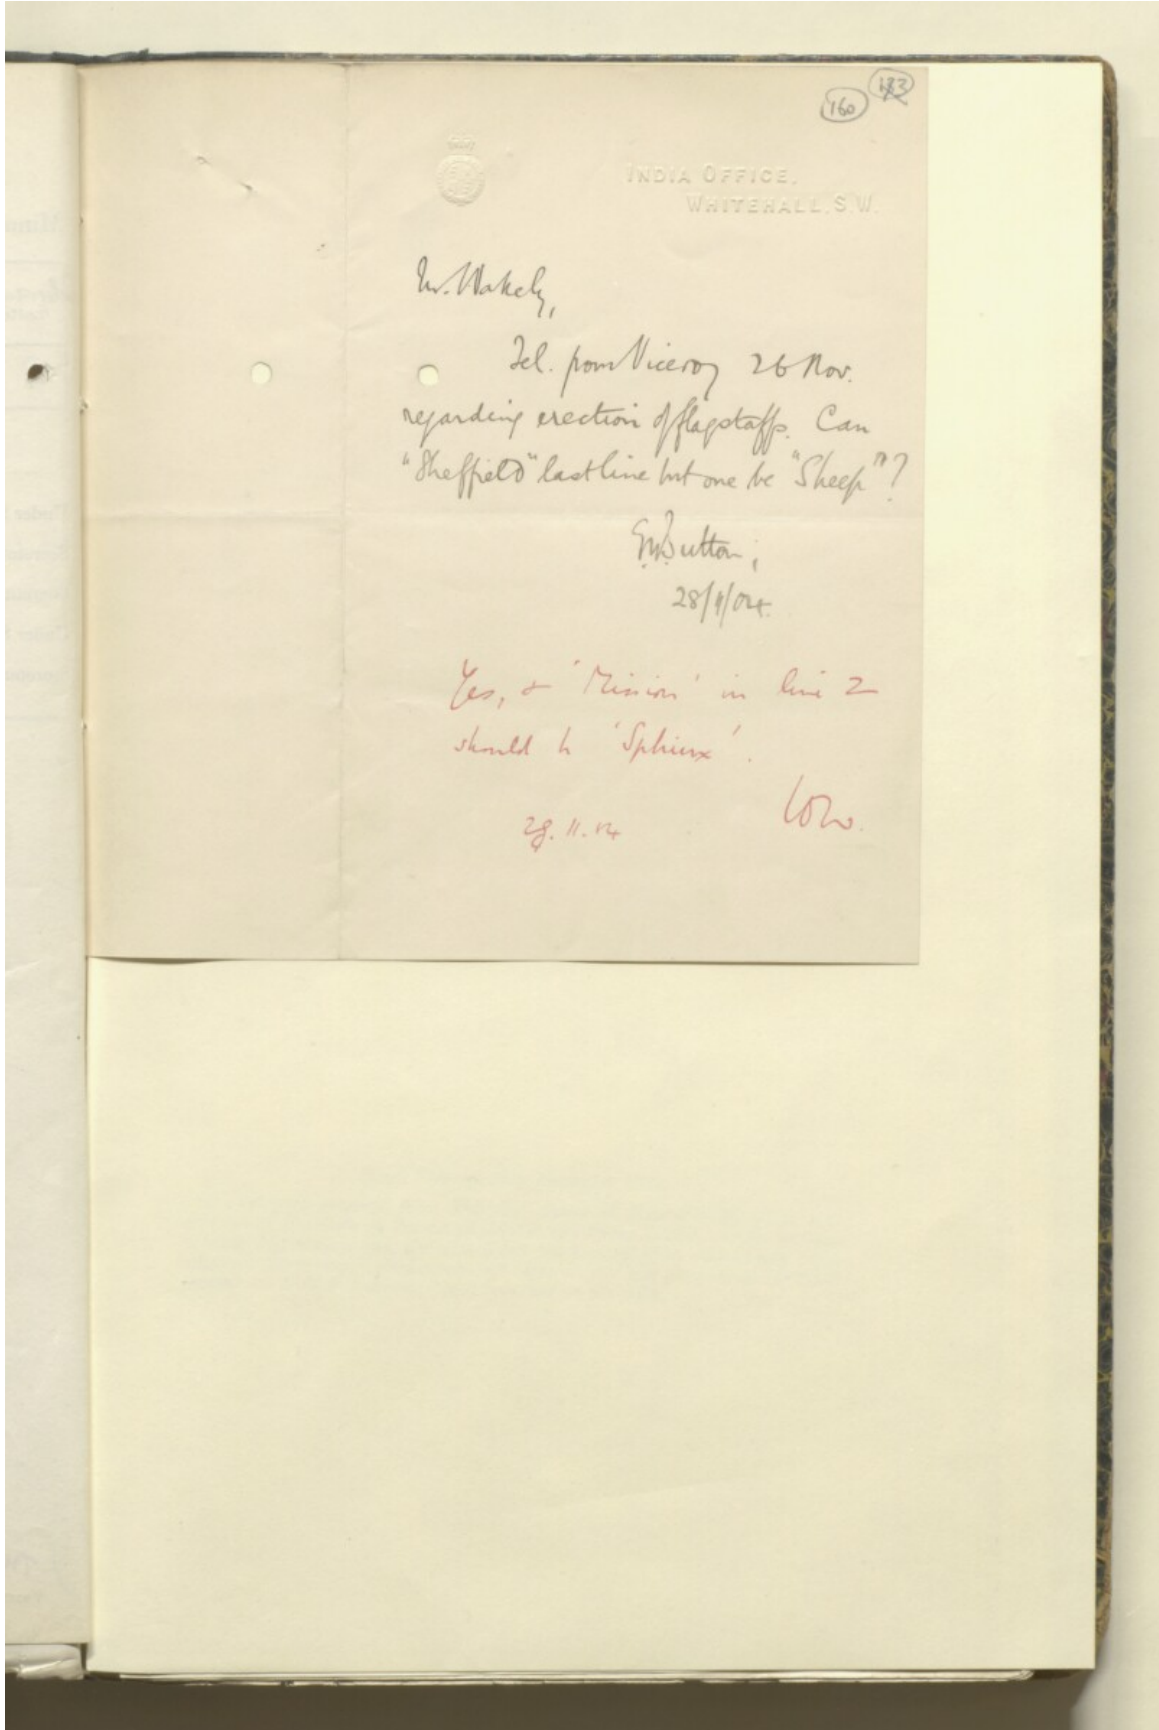 160
INDIA OFFICE,
WHITEHALL, S.W.
Mr. Wakely,
Tel. from Viceroy 26 Nov.
regarding erection of flagstaffs. Can
"Sheffield" last line but one be "Sheep"?
Button;
28/11/04.
Yes, & 'Mission' in line 2
should be 'Sphinx'.
28.11.04